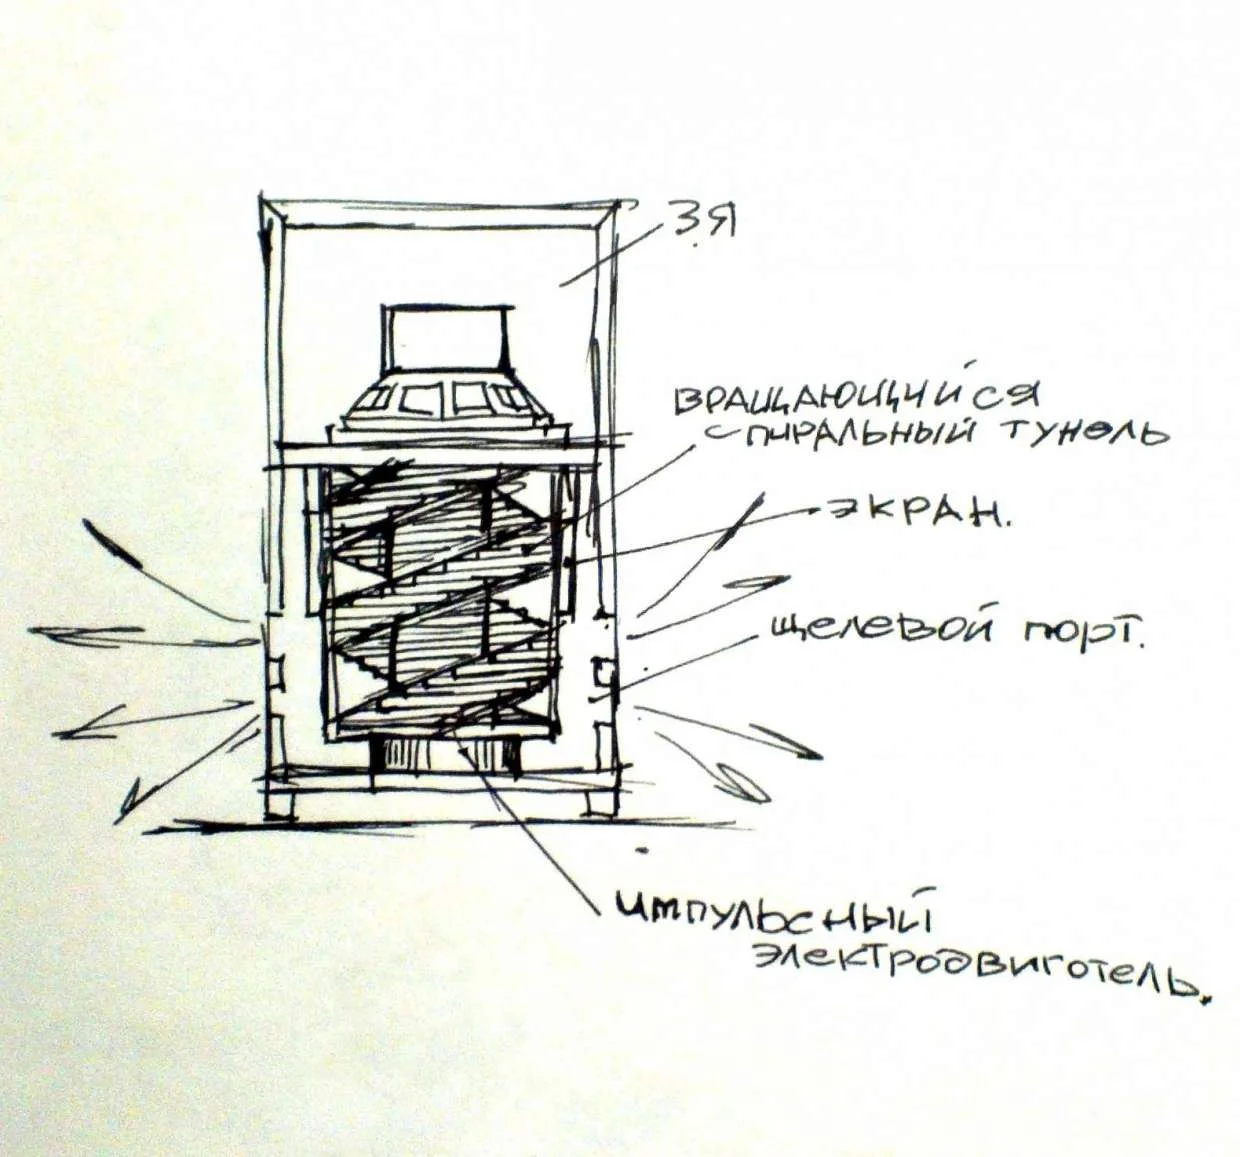 З.Я
ВРАЩАЮЩИЙСЯ
СПИРАЛЬНЫЙ ТУНЕЛЬ
ЭКРАН.
ЩЕЛЕВОЙ ПОРТ.
ИМПУЛЬСНЫЙ
ЭЛЕКТРОДВИГОТЕЛЬ.